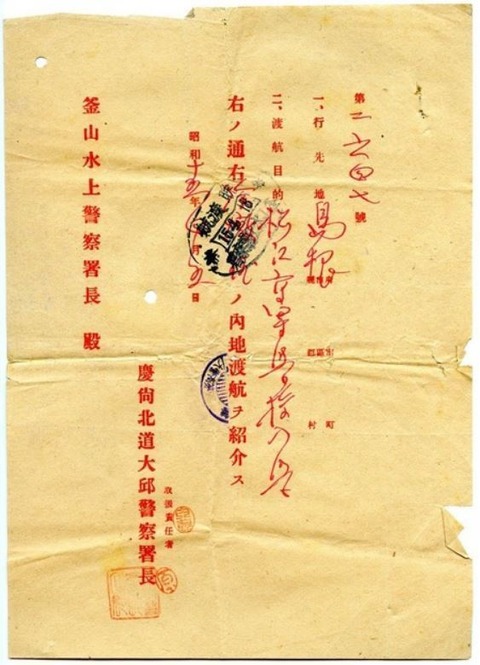 第二六四七號
一、行先地 島根
市 區 郡 町 村
二、渡航目的 松江高等学校入学
右ノ通右 ノ內地渡航ヲ紹介ス
昭和十五年 月 五日
慶尙北道大邱警察署長
取扱責任者
釜山水上警察署長 殿